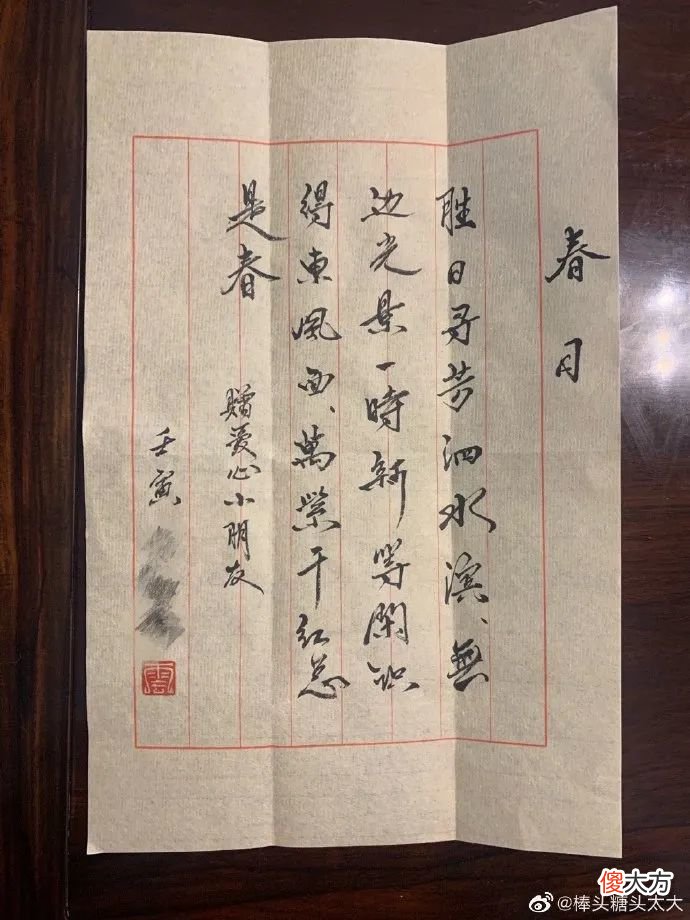 春日
胜日寻芳泗水滨、無
边光景一時新等閑识
得東風面、萬紫千红总
是春
赠爱心小朋友
壬寅
雲
傻大方
@棒头糖头太大